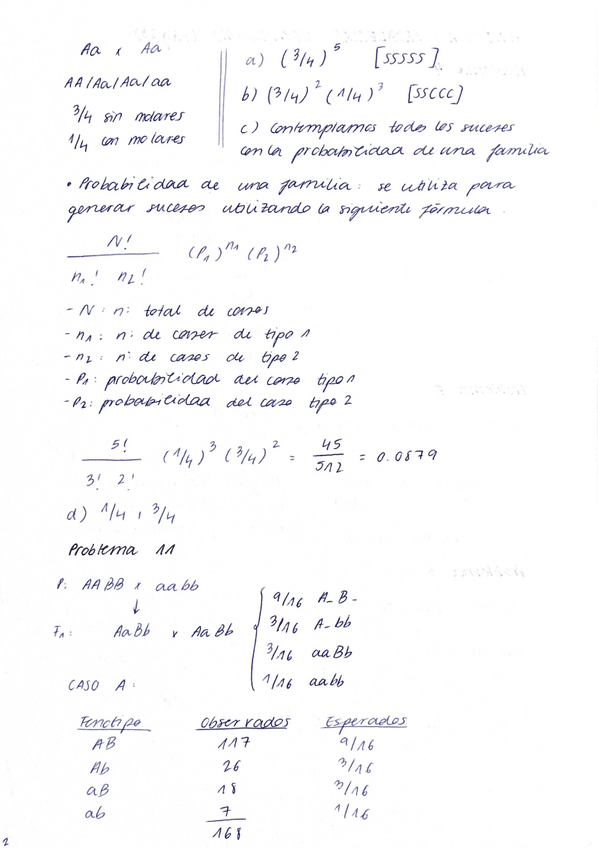 Aa x Aa
AA/Aa/Aa/aa
3/4 sin molares
1/4 con molares
a) (3/4)^5 [SSSSS]
b) (3/4)^2 (1/4)^3 [SSCCC]
c) Contemplamos todos los sucesos
con la probabilidad de una familia
• Probabilidad de una familia: se utiliza para
generar sucesos utilizando la siguiente fórmula.
N! / n1! n2! (P1)^n1 (P2)^n2
- N: nº total de casos
- n1: nº de casos de tipo 1
- n2: nº de casos de tipo 2
- P1: probabilidad del caso tipo 1
- P2: probabilidad del caso tipo 2
5! / 3! 2! (1/4)^3 (3/4)^2 = 45/512 = 0.0879
d) 1/4, 3/4
Problema 11
P: AABB x aabb
↓
F1: AaBb x AaBb
9/16 A_B_
3/16 A_bb
3/16 aaBb
1/16 aabb
CASO A:
Fenotipo Observados Esperados
AB 117 9/16
Ab 26 3/16
aB 18 3/16
ab 7 1/16
168
2